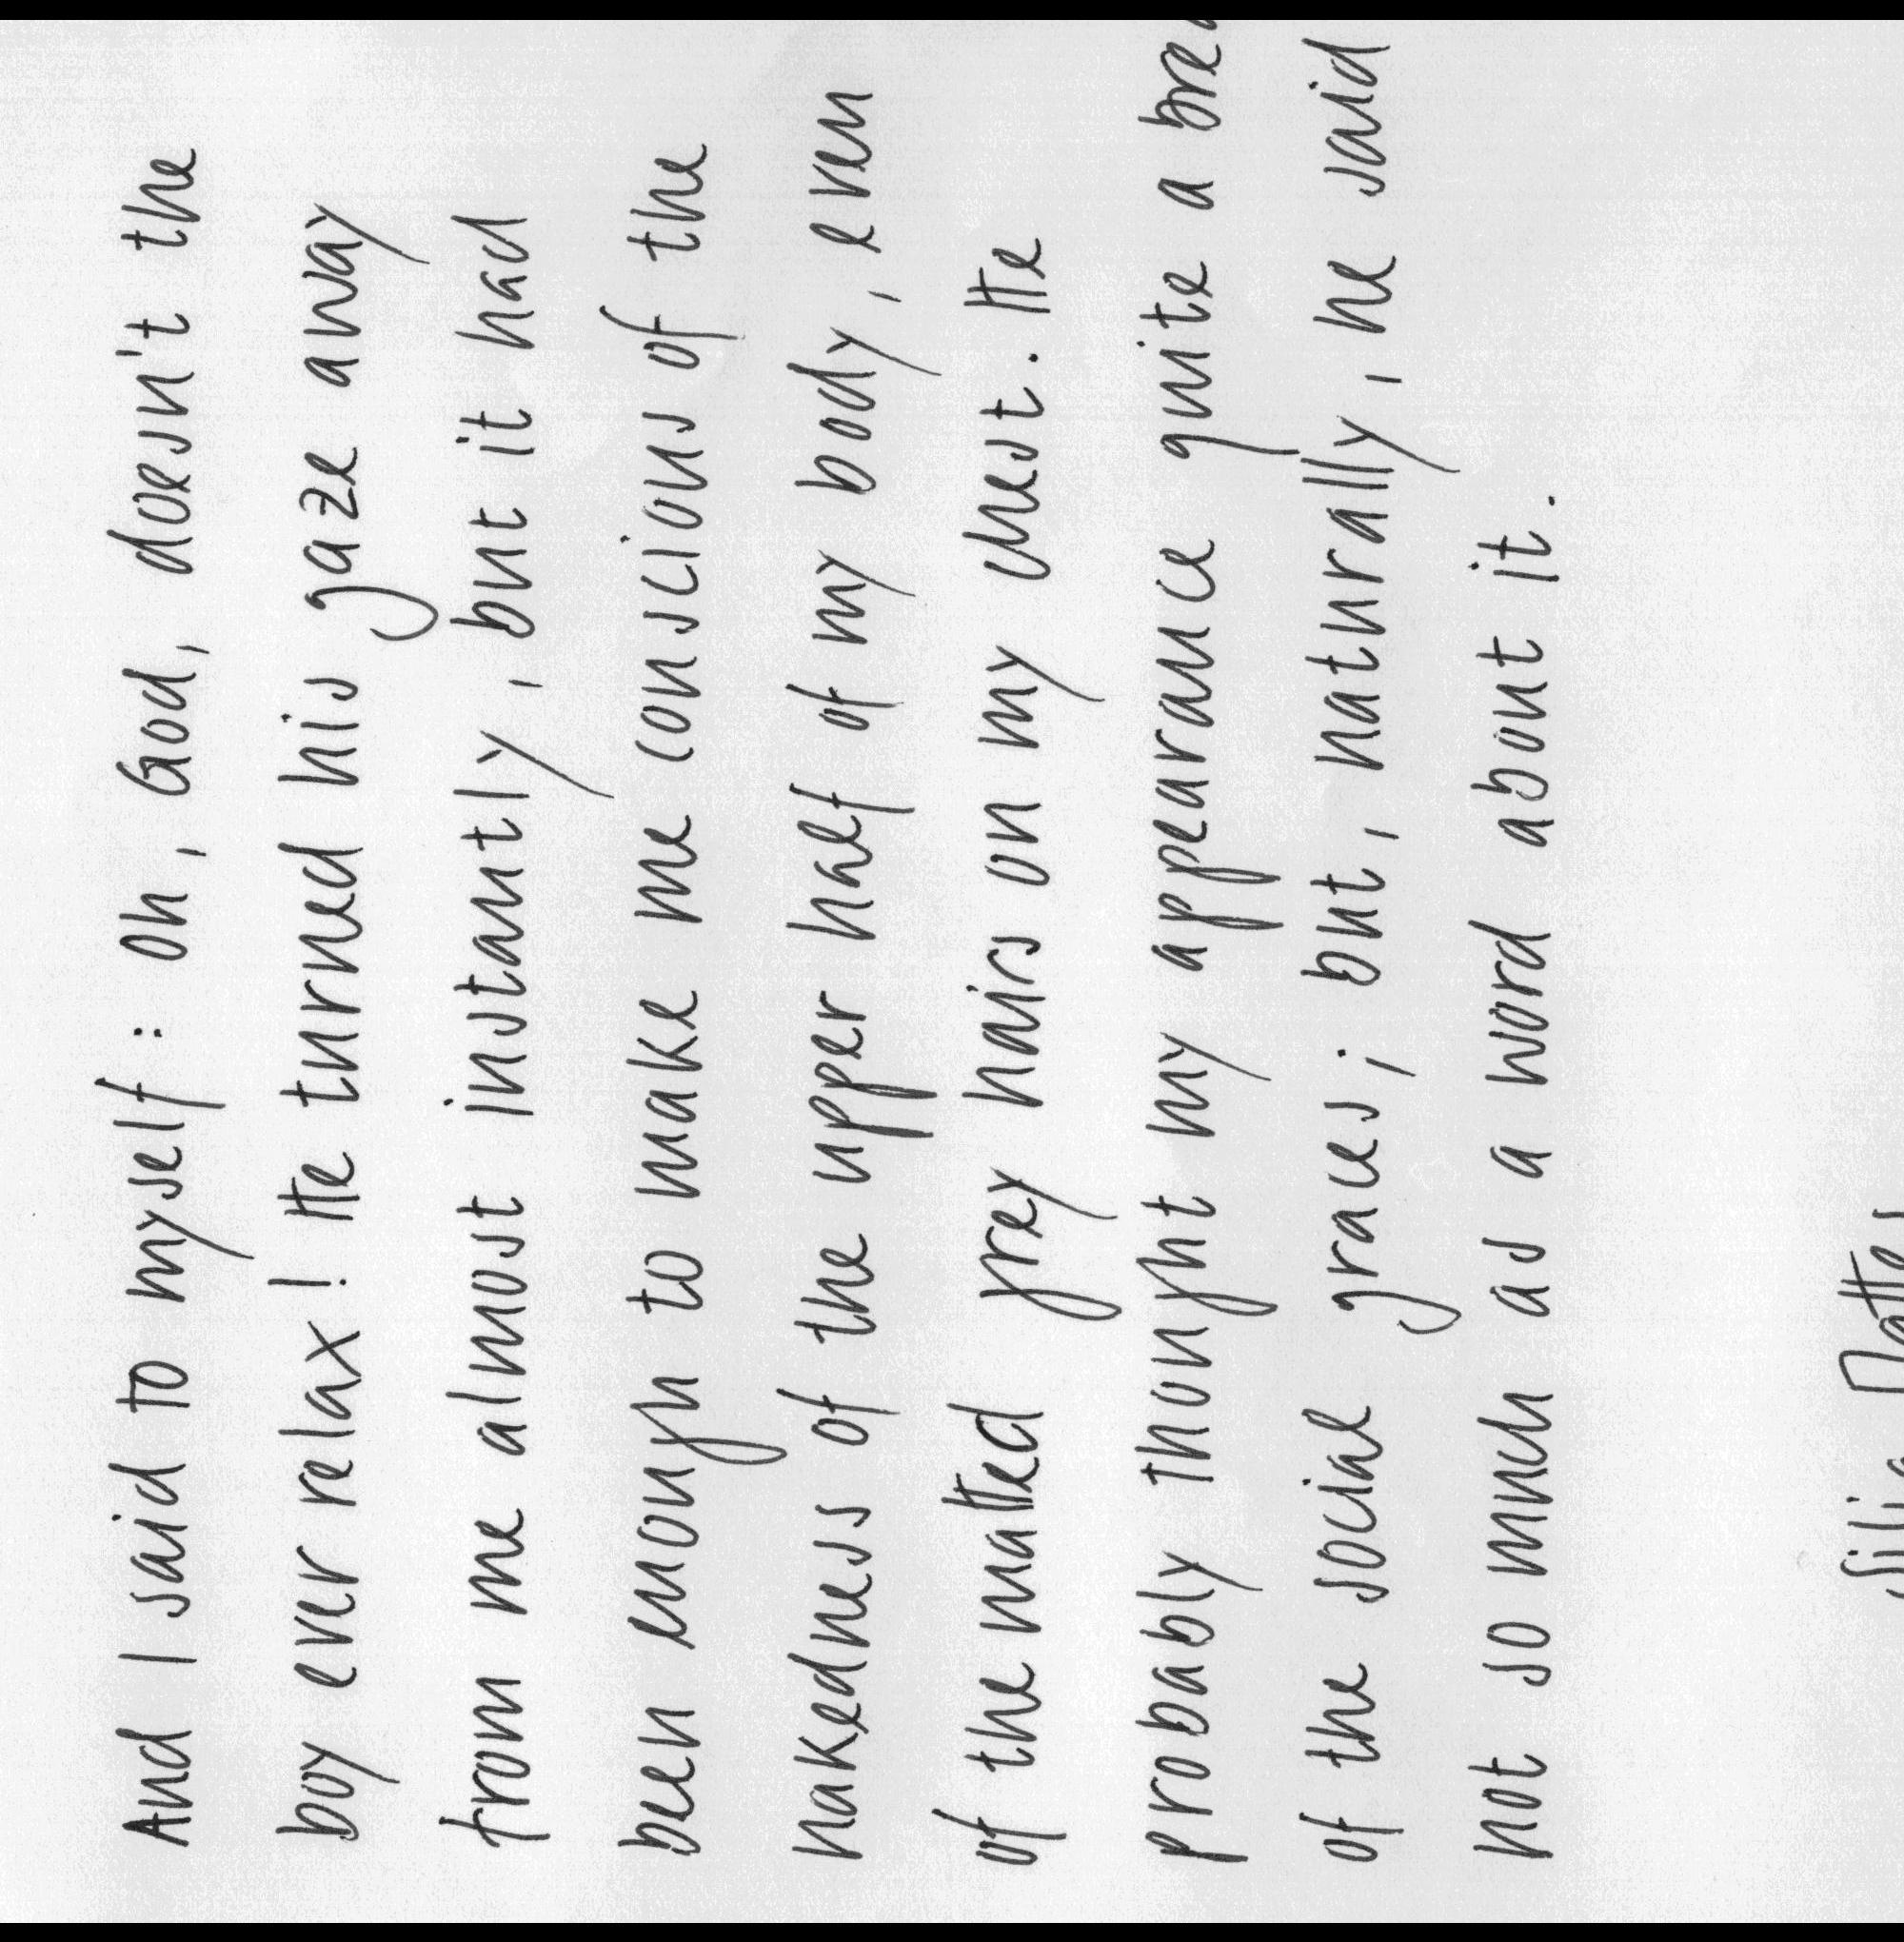 And I said to myself: Oh, God, doesn't the
boy ever relax! He turned his gaze away
from me almost instantly, but it had
been enough to make me conscious of the
nakedness of the upper half of my body, even
of the matted grey hairs on my chest. He
probably thought my appearance quite a
of the social graces; but, naturally, he said
not so much as a word about it.